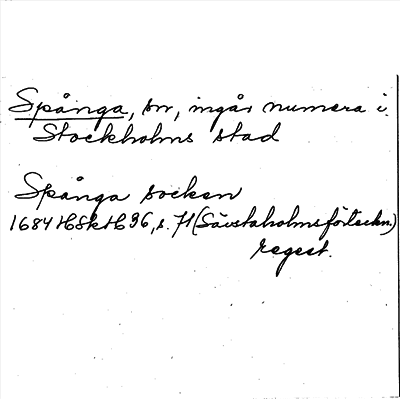 Spånga, sn, ingår numera i
Stockholms stad
Spånga socken
1684 HSkH 96, s. 71 (Sävstaholmsförteckn.)
regest.